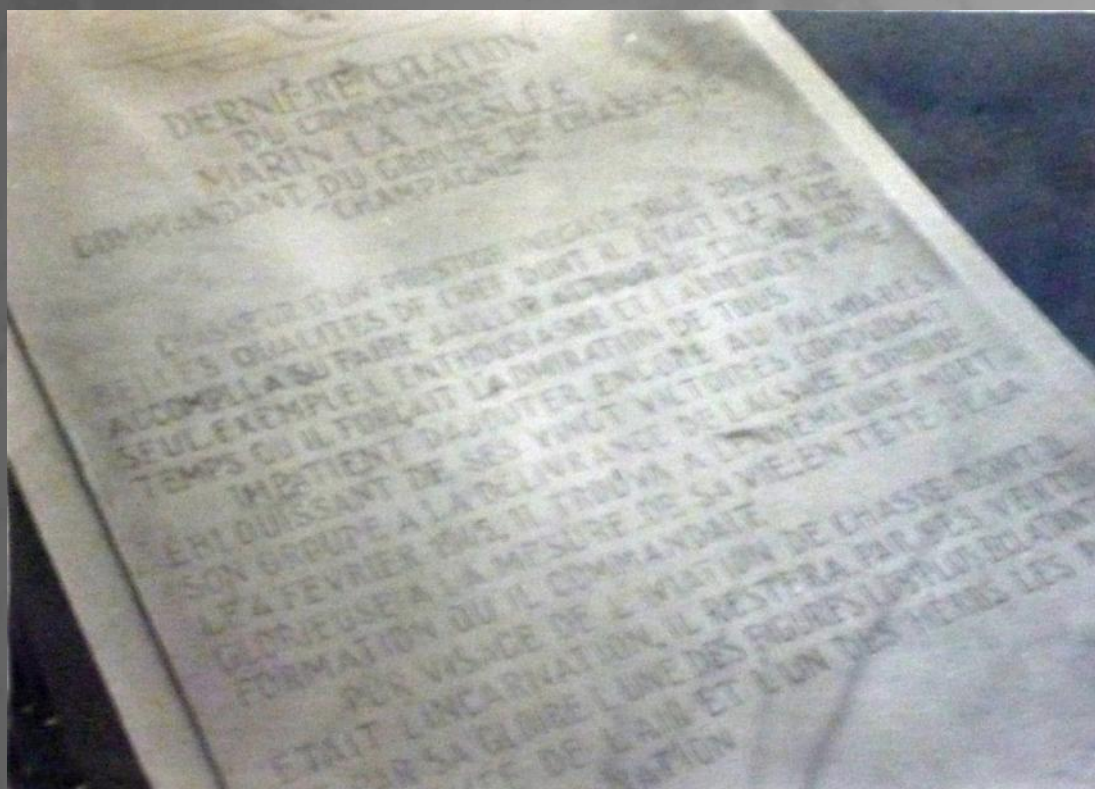 DERNIÈRE CITATION
DU COMMANDANT
MARIN LA MESLÉE
COMMANDANT DU GROUPE DE CHASSE
CHAMPAGNE"
CHASSEUR D'UN PRESTIGE
BELLES QUALITÉS DE CHEF DONT IL ÉTAIT LE TYPE
ACCOMPLI, A SU FAIRE JAILLIR AUTOUR DE LUI, PAR SON
SEUL EXEMPLE L'ENTHOUSIASME ET L'ARDEUR EN MÊME
TEMPS QU'IL FORÇAIT L'ADMIRATION DE TOUS
IMPATIENT D'AJOUTER ENCORE AU PALMARÈS
ÉBLOUISSANT DE SES VINGT VICTOIRES CONDUISAIT
SON GROUPE A LA DÉLIVRANCE DE L'ALSACE LORSQUE
LE 4 FÉVRIER 1945, IL TROUVA A L'ENNEMI UNE MORT
GLORIEUSE A LA MESURE DE SA VIE, EN TÊTE DE LA
FORMATION QU'IL COMMANDAIT
PUR VISAGE DE L'AVIATION DE CHASSE DONT IL
ÉTAIT L'INCARNATION, IL RESTERA PAR SES VERTUS
PAR SA GLOIRE L'UNE DES FIGURES LES PLUS
DE L'AIR ET L'UN DES HÉROS LES
NATION